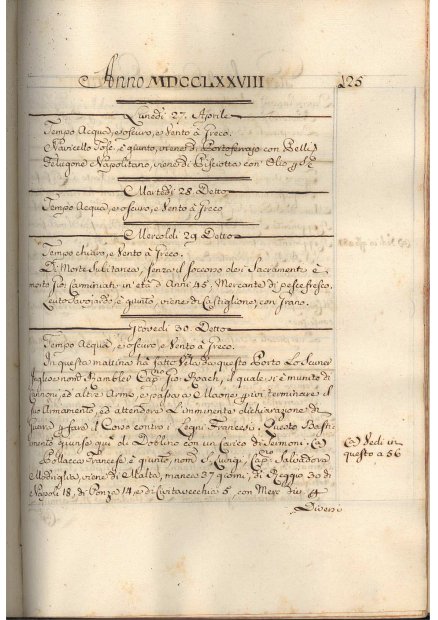 Anno MDCCLXXVIII 125
Lunedì 27. Aprile
Tempo Acqua, e oscuro, e Vento à Greco.
Navicello Tosc.º è giunto, viene di Portoferrajo con Pelli
Felugone Napolitano, viene di Pisciotta con Olio
Martedì 28. Detto
Tempo Acqua, e oscuro, e Vento à Greco
Mercoldì 29. Detto
Tempo chiaro, e Vento à Greco.
Di Morte Subitanea, senza il soccorso dei Sacramenti è
morto Gio: in età d'Anni 45, Mercante di pesce fresco.
Leuto è giunto, viene di Castiglione, con Grano.
Giovedì 30. Detto
Tempo Acqua, e oscuro, e Vento à Greco.
In questa mattina hà fatto Vela da questo Porto Lo Scuner
Inglese nom.º Rambler Cap.no Gio: Roach, il quale si è munito di
Cannoni, ed altre Armi, e passa a Maone p ivi terminare il
suo Armamento, ed attendere l'imminente dichiarazione di
Guerra p fare il Corso contro i Legni Francesi. Questo Basti-
mento giunse qui di Dublino con un Carico di (a)
(a) Vedi in
questo a 56
Pollacca Francese è giunta, nom.ª S. Luigi, Cap.no Salvadore
viene di Malta, manca 37 giorni, di Reggio 30 di
Napoli 18, di Ponza 14, e di Civitavecchia 5, con Merc. p
Diversi